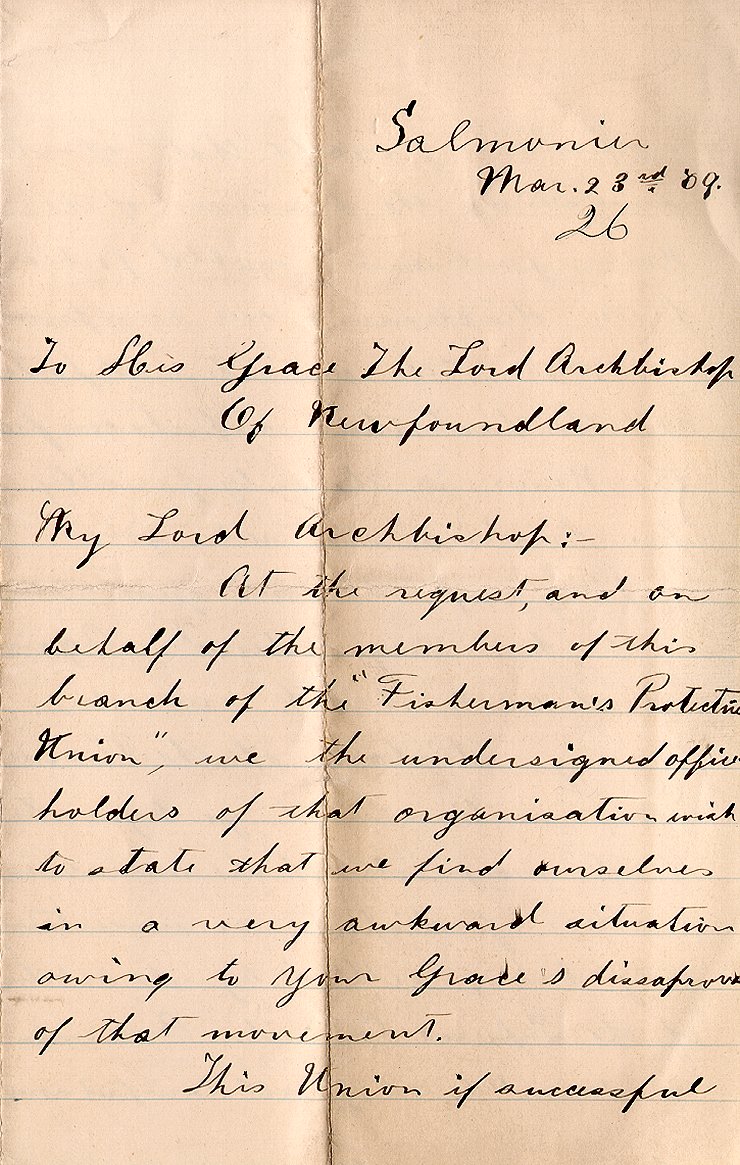 Salmonier
Mar. 23rd. '09.
26
To His Grace The Lord Archbishop
Of Newfoundland
My Lord Archbishop:-
At the request, and on
behalf of the members of this
branch of the "Fisherman's Protective
Union", we the undersigned office
holders of that organisation wish
to state that we find ourselves
in a very awkward situation
owing to your Grace's dissaprova
of that movement.
This Union if successful